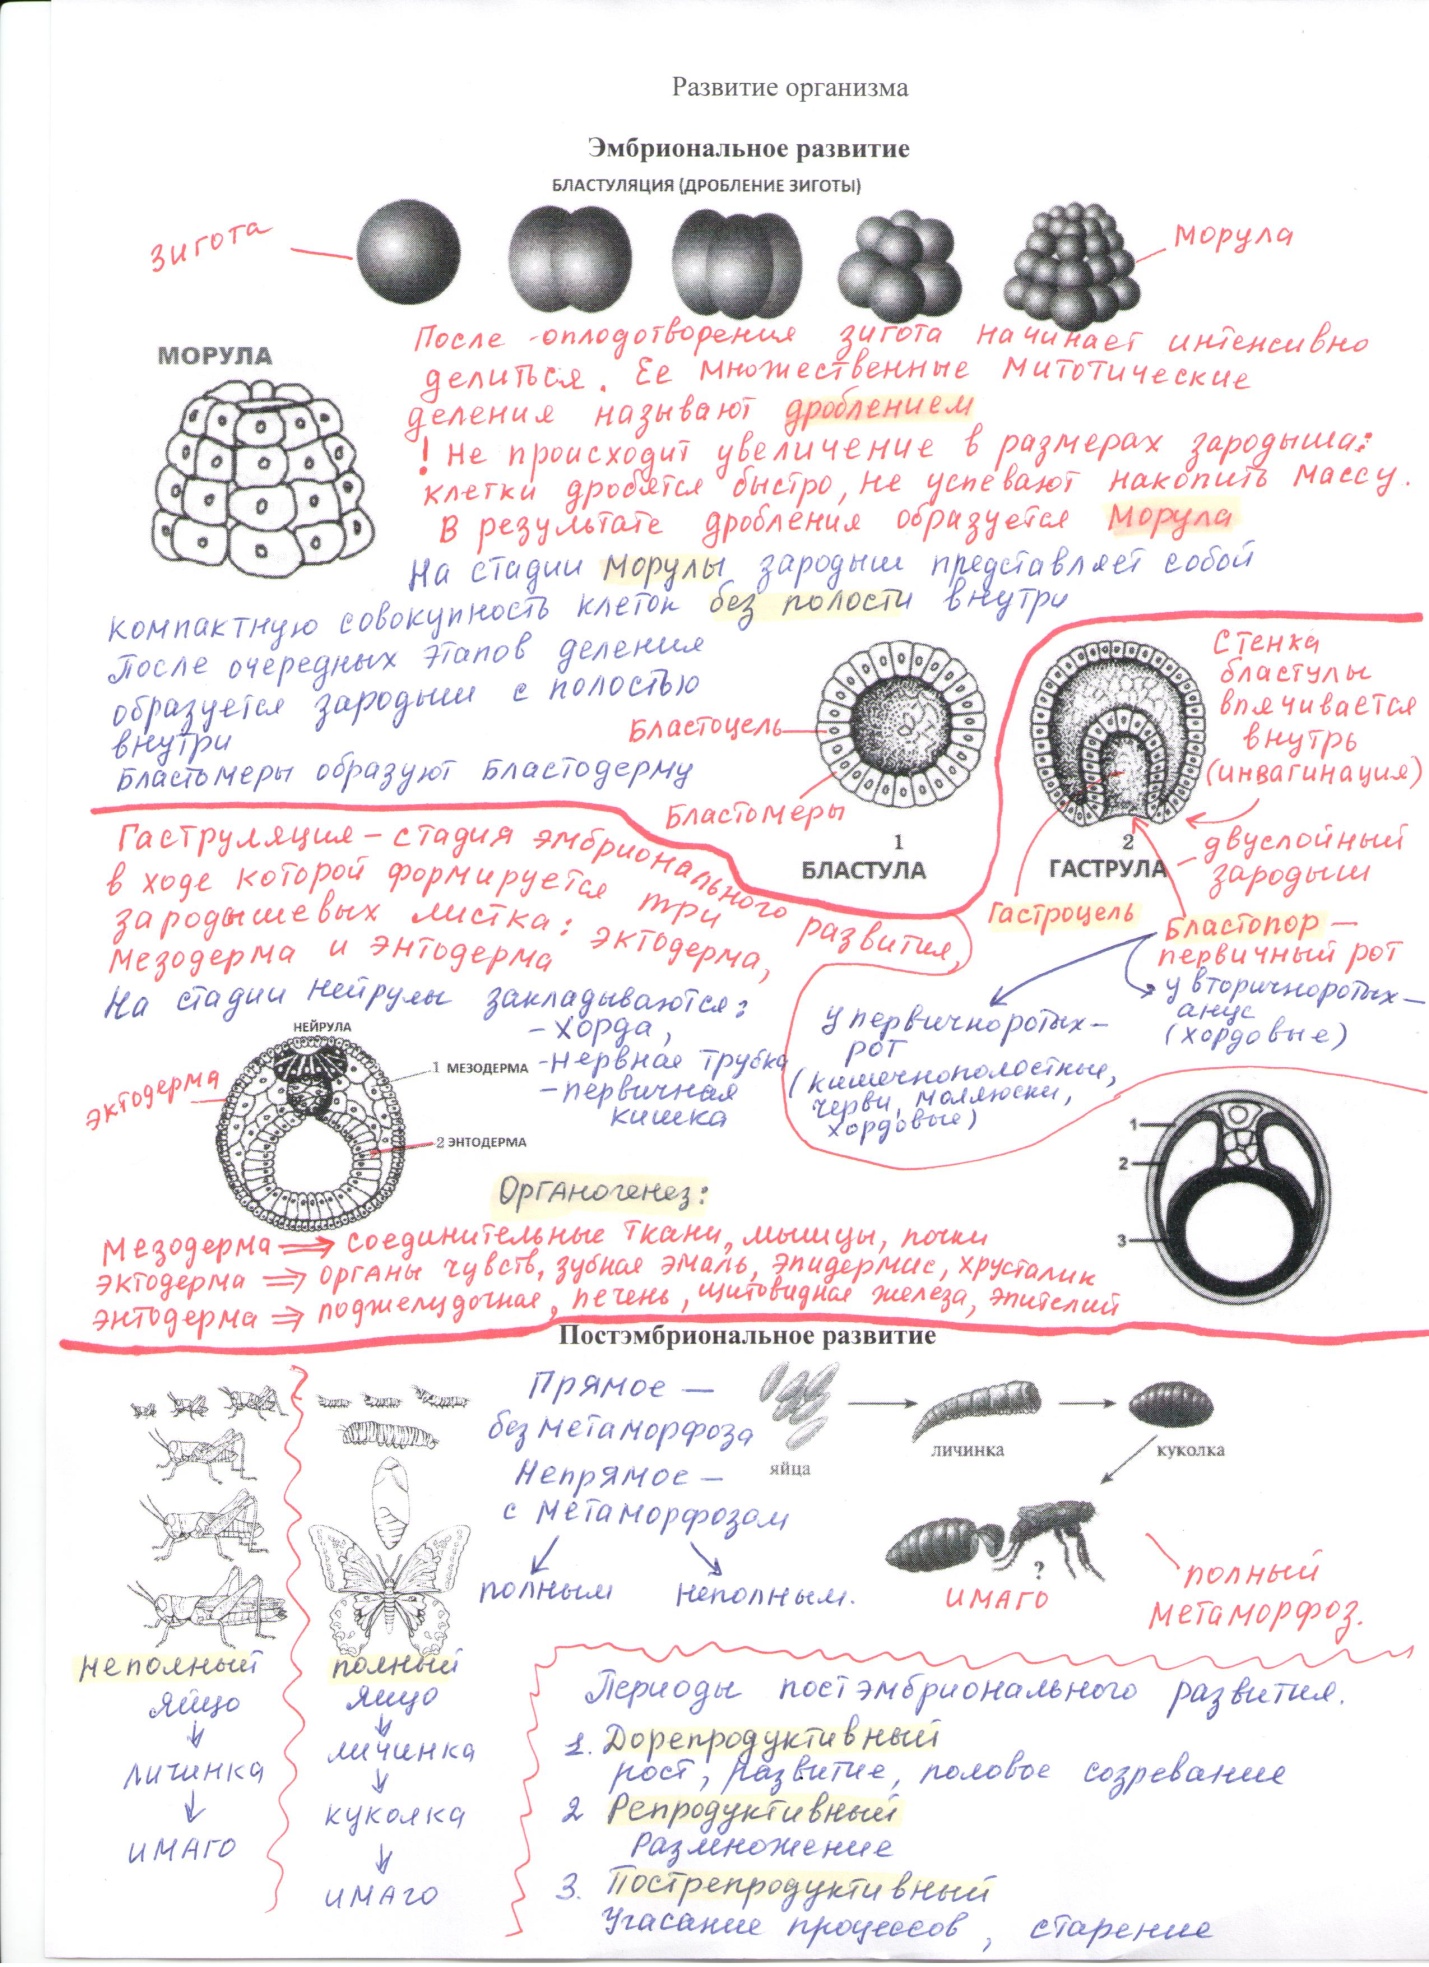 Развитие организма
Эмбриональное развитие
БЛАСТУЛЯЦИЯ (ДРОБЛЕНИЕ ЗИГОТЫ)
зигота
морула
МОРУЛА
После оплодотворения зигота начинает интенсивно
делиться. Ее множественные митотические
деления называют дроблением
! Не происходит увеличение в размерах зародыша:
клетки дробятся быстро, не успевают накопить массу.
В результате дробления образуется Морула
На стадии морулы зародыш представляет собой
компактную совокупность клеток без полости внутри
После очередных этапов деления
образуется зародыш с полостью
внутри
Бластомеры образуют бластодерму
Бластоцель
Бластомеры
1
БЛАСТУЛА
Стенка
бластулы
впячивается
внутрь
(инвагинация)
двуслойный
зародыш
2
ГАСТРУЛА
Гастроцель
Бластопор –
первичный рот
у вторичноротых –
анус
(хордовые)
у первичноротых –
рот
(кишечнополостные,
черви, моллюски,
хордовые)
Гаструляция – стадия эмбрионального развития,
в ходе которой формируется три
зародышевых листка: эктодерма,
мезодерма и энтодерма
На стадии нейрулы закладываются:
- хорда,
- нервная трубка
- первичная
кишка
НЕЙРУЛА
эктодерма
1 МЕЗОДЕРМА
2 ЭНТОДЕРМА
1
2
3
Органогенез:
Мезодерма ⇒ соединительные ткани, мышцы, почки
эктодерма ⇒ органы чувств, зубная эмаль, эпидермис, хрусталик
энтодерма ⇒ поджелудочная, печень, щитовидная железа, эпителий
Постэмбриональное развитие
Прямое –
без метаморфоза
Непрямое –
с метаморфозом
полным неполным.
яйца
личинка
куколка
?
имаго
полный
метаморфоз.
неполный
яйцо
↓
личинка
↓
имаго
полный
яйцо
↓
личинка
↓
куколка
↓
имаго
Периоды постэмбрионального развития.
1. Дорепродуктивный
рост, развитие, половое созревание
2 Репродуктивный
Размножение
3. Пострепродуктивный
Угасание процессов, старение